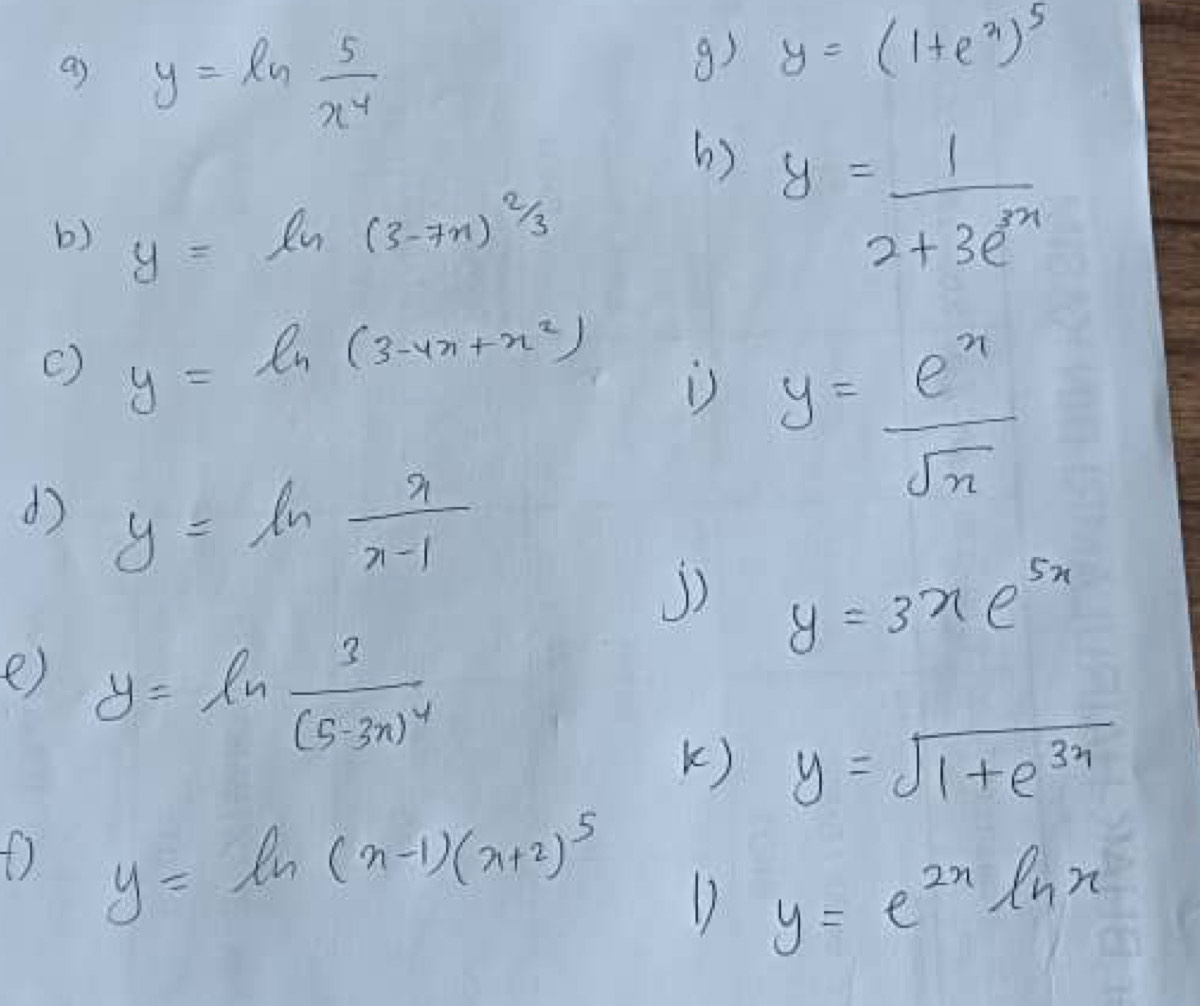 a) y = ln 5/x⁴
b) y = ln (3-7x)^2/3
c) y = ln (3-4x+x²)
d) y = ln x/(x-1)
e) y = ln 3/(5-3x)⁴
f) y = ln (x-1)(x+2)⁵
g) y = (1+e^x)⁵
h) y = 1/(2+3e^3x)
i) y = e^x/√x
j) y = 3xe^5x
k) y = √(1+e^3x)
l) y = e^2x ln x